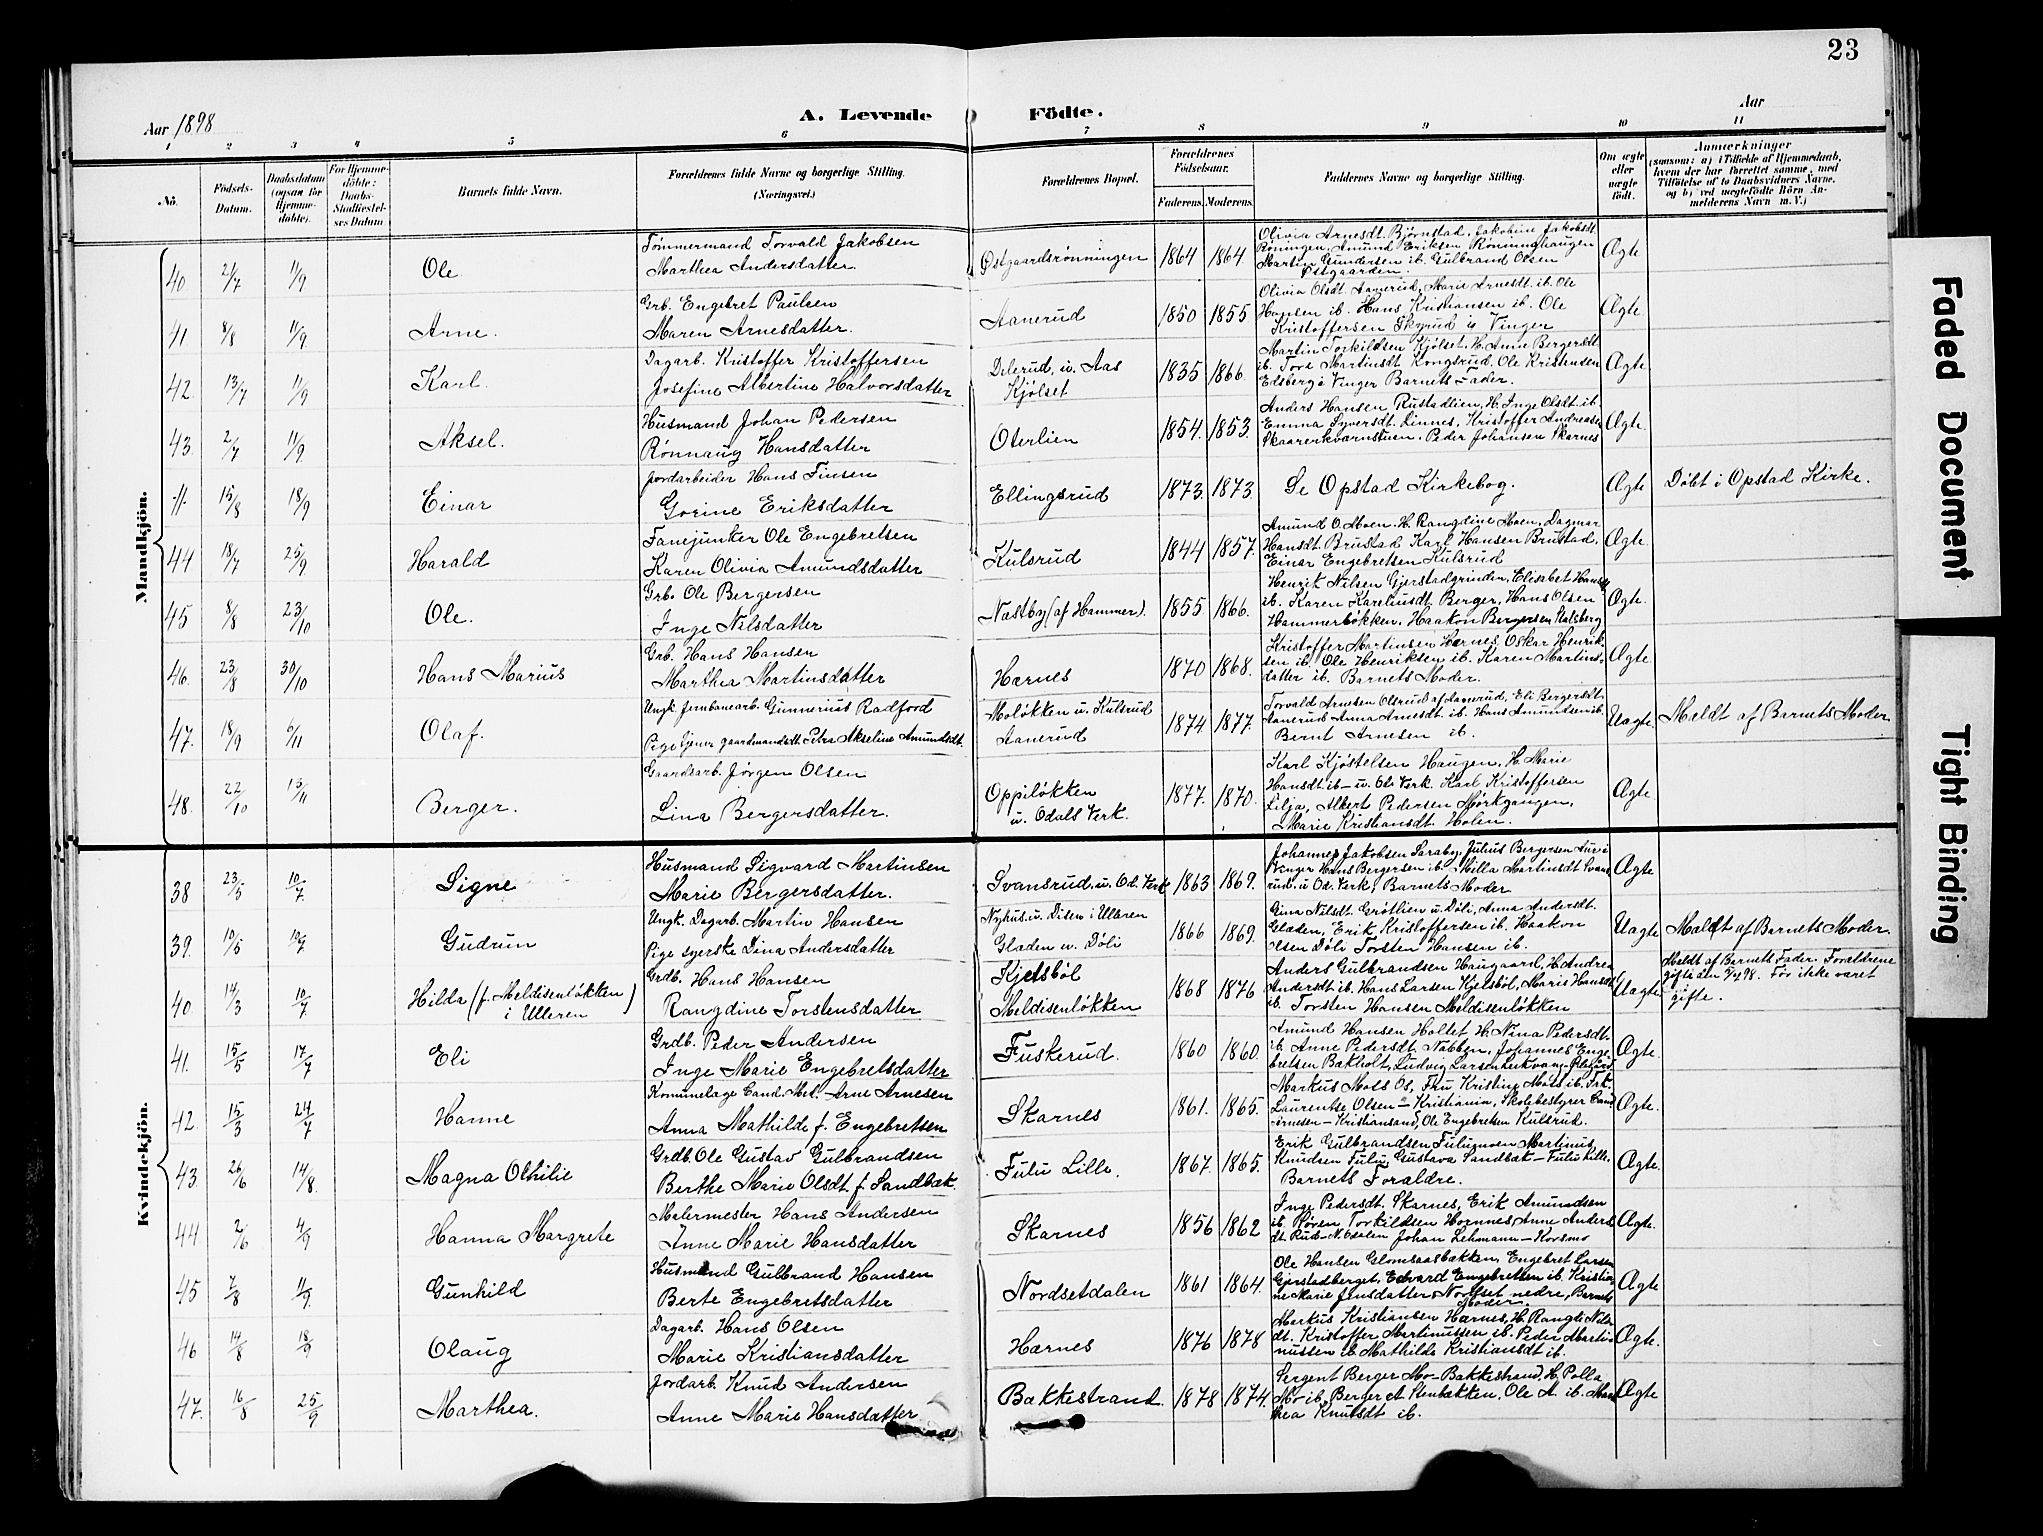 23
Aar 1898
A. Levende Födte.
Aar
1 2 3 4 5 6 7 8 9 10 11
No.
Födsels-Datum.
Daabsdatum (ogsaa for Hjemmedöbte).
For Hjemmedöbte: Daabs-Stadfæstelses Datum
Barnets fulde Navn.
Forældrenes fulde Navne og borgerlige Stilling. (Næringsvei.)
Forældrenes Bopæl.
Forældrenes Födselsaar.
Faderens. Moderens.
Faddernes Navne og borgerlige Stilling.
Om ægte eller uægte födt.
Anmærkninger
(saasom: a) i Tilfælde af Hjemmedaab, hvem der har forrettet samme, med Tilföielse af to Daabsvidners Navne, og b) ved uægtefödte Börn Anmelderens Navn m. V.)
Mandkjön.
40 2/7 11/9 Ole
Tømmermand Torvald Jakobsen
Marthea Andersdatter
Østgaardsrønningen 1864 1864
Olivia Arnesdt. Bjørnstad, Jakobine Jakobsdt
Røningen, Amund Eriksen Rønninghaugen
Martin Gundersen ib. Gulbrand Olsen
Østgaarden.
Ægte
41 8/8 11/9 Arne.
Grb. Engebret Paulsen
Maren Arnesdatter.
Aanerud 1850 1855
Olivia Olsdt. Aanerud, Marie Arnesdt. ib. Ole
Hansen ib. Hans Kristiansen ib. Ole
Kristoffersen Skyrud i Vinger
Ægte
42. 13/7 11/9 Karl.
Dagarb. Kristoffer Kristoffersen
Josefine Albertine Halvorsdatter
Delerud, u. Aas
Kjølset
1835 1866.
Martin Torkildsen Kjölset. H. Anne Bergersdt
ib. Tora Martinsdt Kongsrud. Ole Kristiansen
Edsberg i Vinger Barnets Fader.
Ægte
43. 2/7 11/9 Aksel.
Husmand Johan Pedersen
Rønnaug Hansdatter
Oterlien 1854. 1853.
Anders Hansen Rustadlien, H. Inge Olsdt. ib.
Emma Syversdt. Linnes, Kristoffer Andreasen
Skaarerkværnstuen. Peder Johansen Skarnes
Ægte.
15/8 18/9 Einar
Jordarbeider Hans Finsen
Gorine Eriksdatter
Ellingsrud 1873. 1873.
Se Opstad Kirkebog.
Ægte Döbt i Opstad Kirke.
44 18/7 25/9 Harald
Fanejunker Ole Engebretsen
Karen Olivia Amundsdatter
Kulsrud 1844 1857.
Amund O. Moen. H. Rangdine Moen, Dagmar
Hansdt. Brustad Karl Hansen Brustad,
Einar Engebretsen Kulsrud
Ægte.
45 8/8 23/10 Ole.
Grb. Ole Bergersen
Inge Nilsdatter
Nastby (af Hammer). 1855 1866.
Henrik Nilsen Gjerstadgrinden, Elisabet Hansdt
ib. Karen Kareliusdt Berger, Hans Olsen
Hammerbökken. Haakon Bergersen Kalsberg
Ægte.
46. 23/8 30/10 Hans Marius
Grb. Hans Hansen
Marthea Martinsdatter
Hærnes 1870 1868.
Kristoffer Martinsen Hærnes, Oskar Henrik-
sen ib. Ole Henriksen ib. Karen Martins-
datter ib. Barnets Moder.
Ægte.
47. 18/9 6/11 Olaf.
Ungk. Jernbanearb. Gunnerius Radford
Pige tjener gaardmandsdt. Petra Akseline Amundsdt.
Moløkken u. Kulsrud
Aanerud
1874 1877.
Torvald Arnesen Olsrud af Aanerud, Eli Bergersdt.
Aanerud Anna Arnesdt. ib. Hans Amundsen ib.
Bernt Arnesen ib.
Uægte. Meldt af Barnets Moder.
48. 22/10 13/11 Berger.
Gaardsarb. Jörgen Olsen
Lina Bergersdatter.
Oppiløkken
u. Odals Verk.
1877. 1870.
Karl Kjöstelsen Haugen, H. Marie
Hansdt. ib - u. Od. Verk. Karl Kristoffersen
Lilja, Albert Pedersen Mörkgangen,
Marie Kristiansdt. Holen.
Ægte.
Kvindekjön.
38 23/5 10/7 Signe
Husmand Sigvard Martinsen
Marie Bergersdatter.
Svansrud. u. Od. Verk 1863 1869.
Johannes Jakobsen Saraby, Julius Bergersen Fur i
Vinger Hans Bergersen ib. Milla Martinsdt Svans-
rud. u Od. Verk, Barnets Moder
Ægte
39. 10/5 10/7 Gudrun
Ungk. Dagarb. Martin Hansen
Pige syerske Dina Andersdatter
Nyhus. u. Disen i Ulleren
Gladen u. Döli
1866 1869.
Gina Nilsdt. Gröthien u. Döli, Anna Andersdt.
Gladen, Erik Kristoffersen ib. Haakon
Olsen Döli Torsten Hansen ib.
Uægte Meldt af Barnets Moder.
40. 14/3 10/7 Hilda (f. Meldisenløkken i Ulleren)
Grdb. Hans Hansen
Rangdine Torstensdatter
Kjelsböl
Meldisenløkken
1868 1876
Anders Gulbrandsen Haugaard, H. Andrea
Andersdt ib. Hans Larsen Kjelsböl, Maris Hansdt
ib. Torsten Hansen Meldisenløkken
Uægte
Meldt af Barnets Fader. Forældrene
gifte den 98. Før ikke været
gifte.
41. 15/5 17/7 Eli
Grdb. Peder Andersen
Inge Marie Engebretsdatter
Fuskerud. 1860 1860.
Amund Hansen Hollet H. Nina Pedersdt.
ib. Anne Pedersdt. Nabben, Johannes Enge-
bretsen Bakholt, Ludvig Larsen
Ægte.
42. 15/3 24/7 Hanne
Kommunelæge Cand. Med. Arne Arnesen
Anna Mathilde f. Engebretsen
Skarnes 1861. 1865.
Markus Moss Os, Fru Kristine Moss ib. Frk.
Laurentse Olsen - Kristiania, Skolebestyrer Cand
Arnesen - Kristiansand, Ole Engebretsen Kulsrud.
Ægte.
43 26/6 14/8. Magna Othilie
Grdb. Ole Gustav Gulbrandsen
Berthe Marie Olsdt f. Sandbæk.
Fulu Lille. 1867. 1865.
Erik Gulbrandsen Fulumoen Martinus
Knudsen Fulu, Gustava Sandbæk - Fulu Lille.
Barnets Forældre.
Ægte.
44 2/6 4/9 Hanna Margrete
Malermester Hans Andersen
Inne Marie Hansdatter
Skarnes 1856 1862
Inge Pedersdt. Skarnes, Erik Amundsen
ib. Søren Torkildsen Hornnes, Anne Anders-
dt Rud - N. Odalen Johan Lehmann - Korsmo
Ægte.
45 7/8 11/9. Gunhild
Husmand Gulbrand Hansen
Berte Engebretsdatter
Nordsetdalen 1861 1864.
Ole Hansen Glomsaasbakken, Engebret Larsen
Gjerstadberget, Edvard Engebretsen ib. Kristia-
ne Marie Jensdatter, Nordset nedre, Barnets
Moder.
Ægte
46 14/8 18/9 Olaug
Dagarb. Hans Olsen
Marie Kristiansdatter
Hærnes 1876 1878
Markus Kristiansen Hærnes, H. Rangdi Nils-
dt. Kristoffer Martinussen ib. Peder Marti-
nussen ib. Mathilda Kristiansdt ib.
Ægte.
47. 16/8 25/9 Marthea.
Jordarb. Knud Andersen
Anne Marie Hansdatter
Bakkestrand. 1878 1874.
Sergent Berger Mo - Bakkestrand, H. Polla
Mo ib. Berger A Stenbakken, Ole A. ib. Mar-
thea Knutsdt ib.
Ægte
Faded Document
Tight Binding